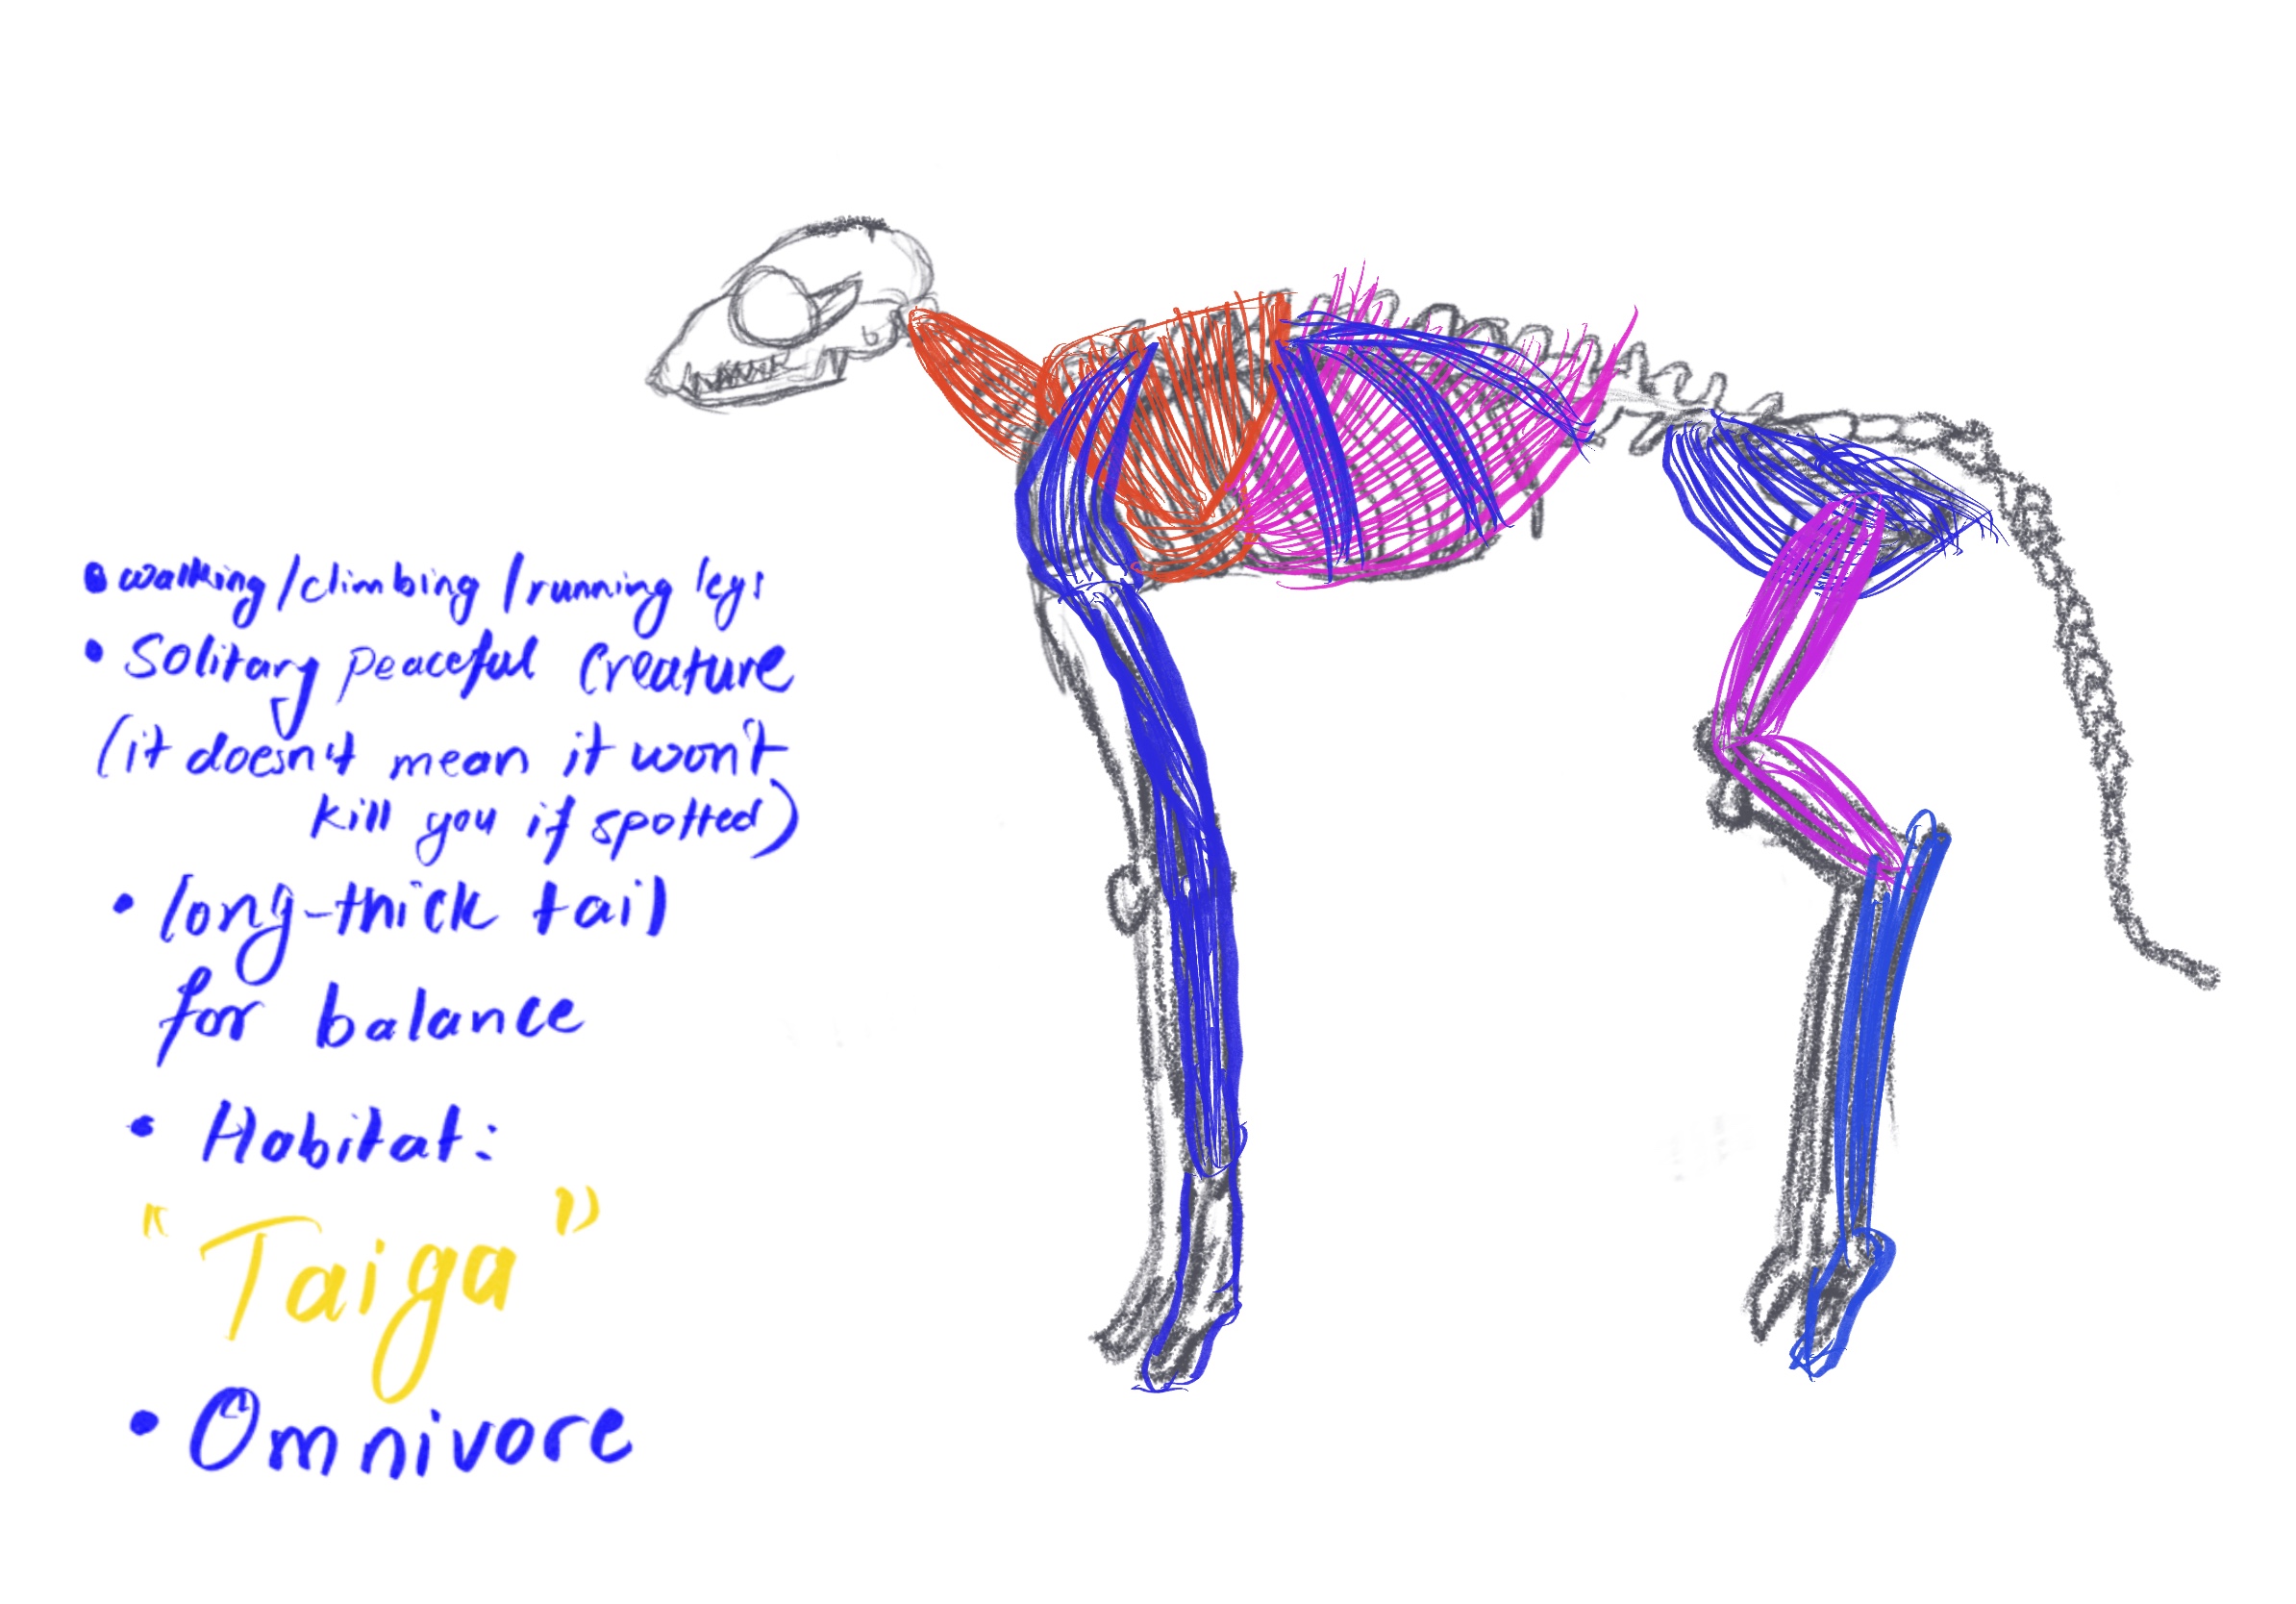 • walking/climbing/running legs
• Solitary peaceful creature
(it doesn't mean it won't
kill you if spotted)
• long-thick tail
for balance
• Habitat:
"Taiga"
• Omnivore